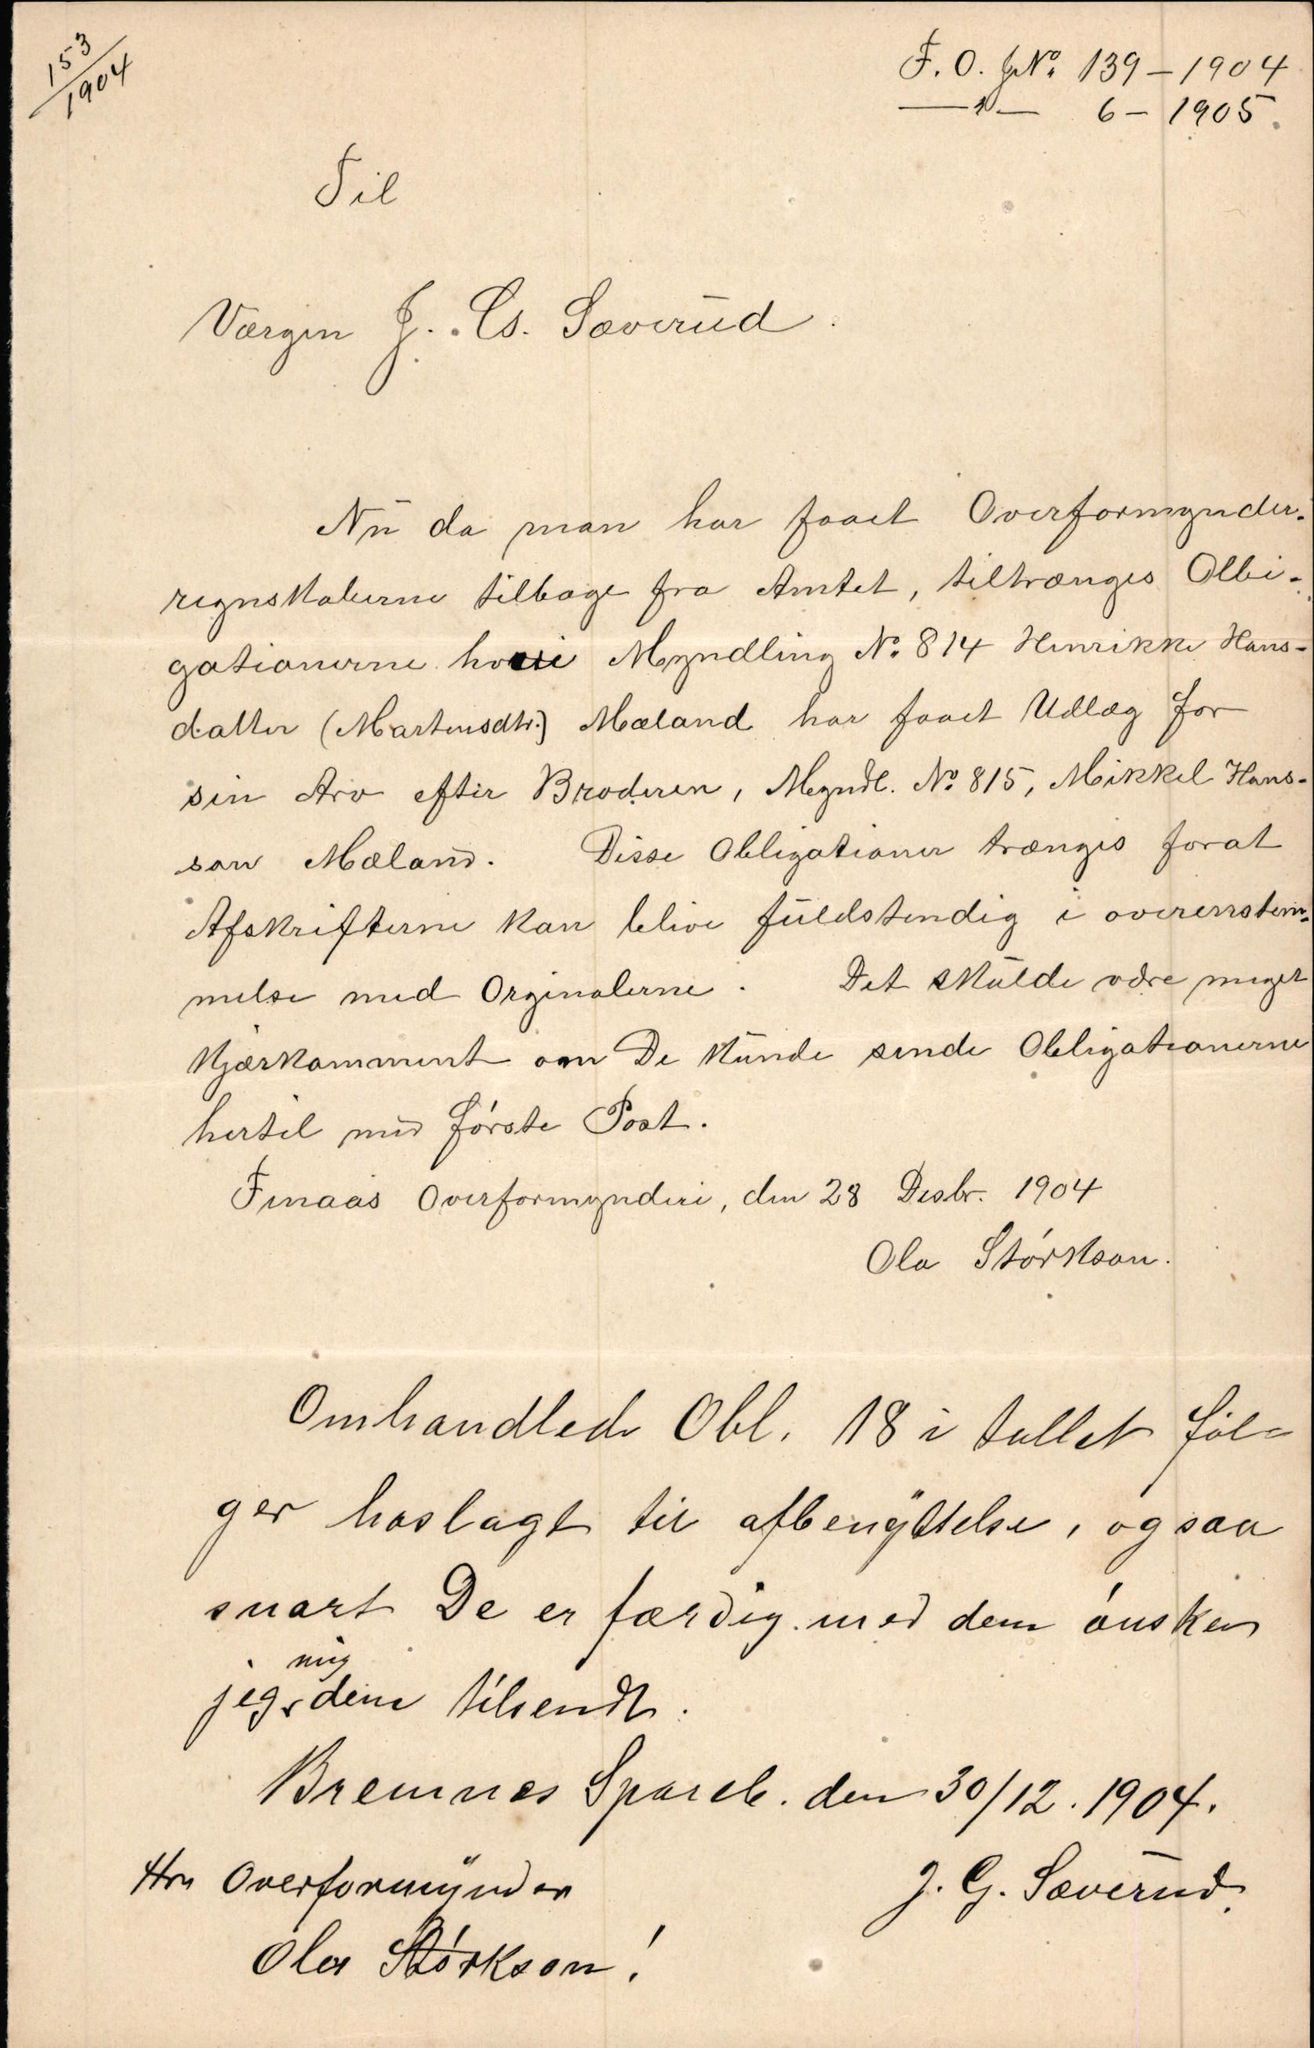 153
1904
F. O. JNo. 139 – 1904
—"— 6 – 1905.
Til
Værgen J. Gs. Sæverud.
Nu da man har faaet Overformynder-
regnskaberne tilbage fra Amtet, tiltrænges Obli-
gationerne hvori Myndling No. 814 Henrikke Hans-
datter (Martensdtr.) Mæland har faaet Udlæg for
sin Arv efter Broderen, Myndl. No. 815, Mikkel Hans-
son Mæland. Disse Obligationer trænges forat
Afskrifterne kan blive fuldstendig i overensstem-
melse med Orginalerne. Det skulde være meget
kjærkomment om De kunde sende Obligationerne
hertil med første Post.
Finaas Overformynderi, den 28 Desbr. 1904
Ola Størkson.
Omhandlede Obl. 18 i tallet føl-
ger hoslagt til afbenyttelse, og saa
snart De er færdig med dem ønskes
mig
jeg dem tilsendt.
Bremnes Spareb. den 30/12. 1904.
Hr. Overformynder
J. G. Sæverud.
Ola Størkson!